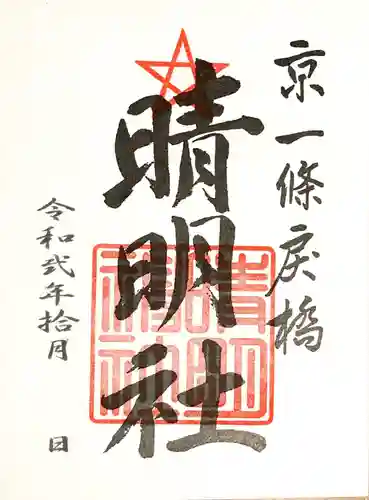 京一條戻橋
晴明社
晴明神社
令和弐年拾月 日